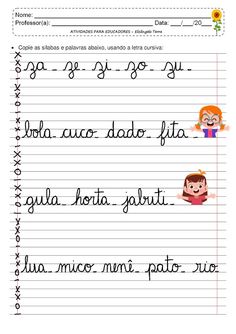 Nome:
Professor(a): Data: __/__/20__
ATIVIDADES PARA EDUCADORES - Elisângela Terra
• Copie as sílabas e palavras abaixo, usando a letra cursiva:
za_ ze_ zi_ zo_ zu_
bola_ cuco_ dado_ fita_
gula_ horta_ jabuti_
lua_ mico_ nenê_ pato_ rio